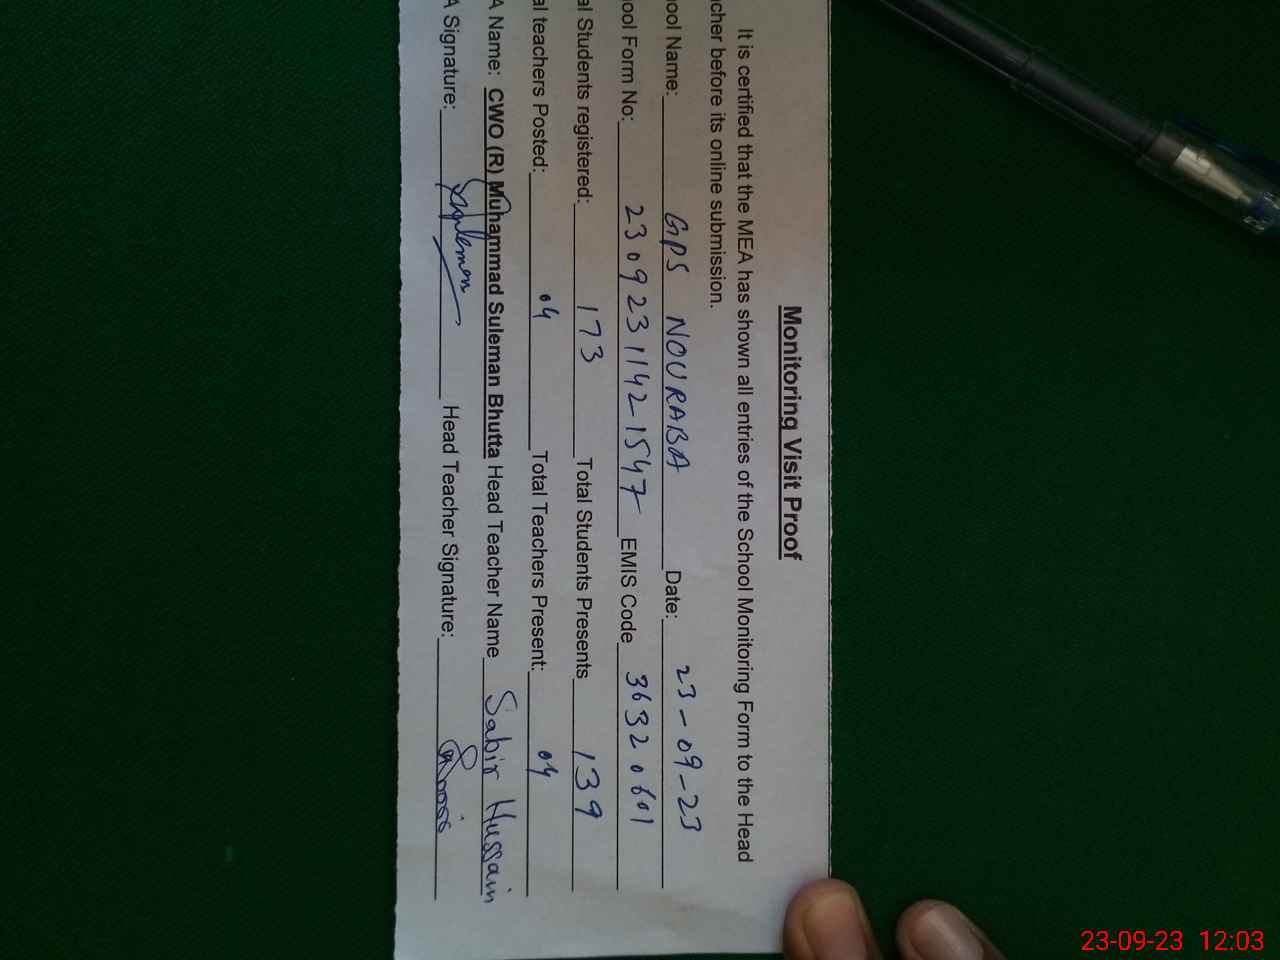 Monitoring Visit Proof
It is certified that the MEA has shown all entries of the School Monitoring Form to the Head
cher before its online submission.
ool Name: GPS NOURABA Date: 23-09-23
ool Form No: 23092311421547 EMIS Code 36320601
al Students registered: 173 Total Students Presents 139
al teachers Posted: 04 Total Teachers Present: 04
A Name: CWO (R) Muhammad Suleman Bhutta Head Teacher Name Sabir Hussain
A Signature: Suleman Head Teacher Signature:
23-09-23 12:03